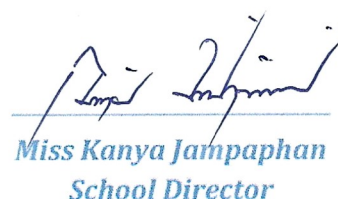 Miss Kanya Jampaphan
School Director